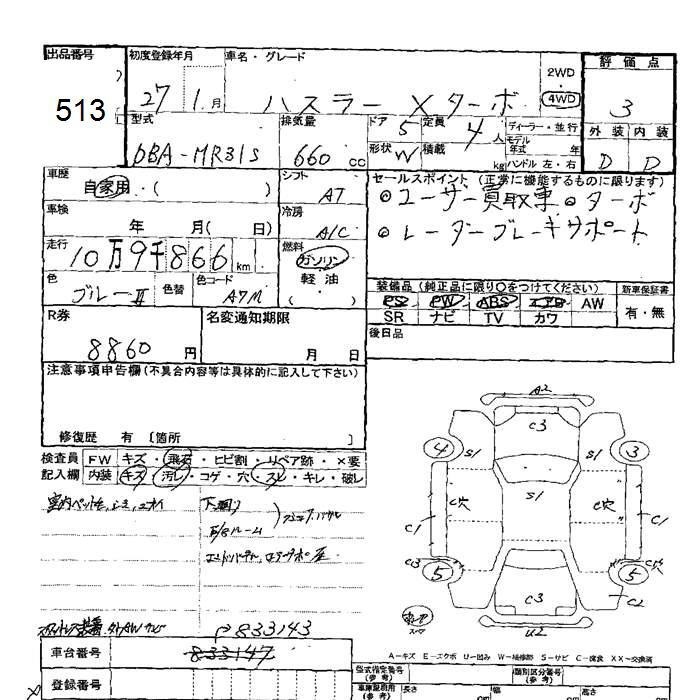 出品番号
513
初度登録年月
27 1月
車名・グレード
ハスラー Xターボ
2WD
4WD
評価点
3
外装 内装
D D
型式
DBA-MR31S
排気量
660 cc
ドア 5
形状 W
定員 4人
積載 kg
ディーラー・並行
モデル年式 年
ハンドル 左・右
車歴
自家用・( )
車検
年 月( 日)
走行
10万9千866km
色
ブルーⅡ
色替
色コード
A7M
シフト
AT
冷房
A/C
燃料
ガソリン
軽油
( )
セールスポイント (正常に機能するものに限ります)
◎ユーザー買取車 ◎ターボ
◎レーダーブレーキサポート
装備品 (純正品に限り○をつけてください)
PS PW ABS エアB AW
SR ナビ TV カワ
新車保証書
有・無
後日品
R券
8860円
名変通知期限
月 日
注意事項申告欄(不具合内容等は具体的に記入して下さい)
修復歴 有 〔箇所 〕
検査員記入欄
FW キズ・飛石・ヒビ割・リペア跡・×要
内装 キズ・汚レ・コゲ・穴・スレ・キレ・破レ
下廻り
833143
車台番号
833147
登録番号
A2
C3
4
3
S1
S1
S1
C穴
C穴
C1
C1
C3
5
5
C穴
C2
C3
U2
スペア
A−キズ E−エクボ U−凹み W−補修跡 S−サビ C−腐食 XX−交換済
型式指定番号(参考)
類別区分番号(参考)
車庫証明用(参考)
長さ cm
幅 cm
高さ